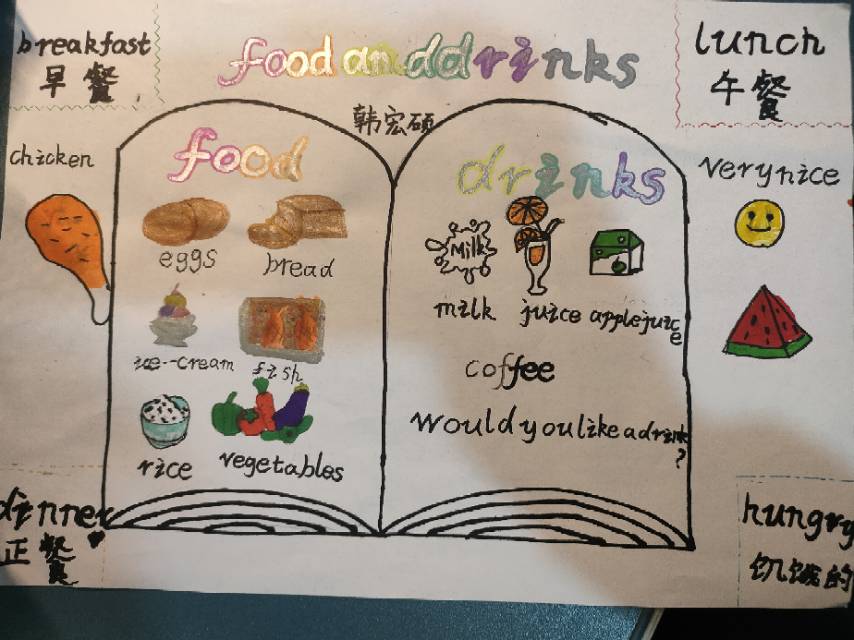 breakfast
早餐
food and drinks
lunch
午餐
韩宏硕
chicken
food
eggs
bread
ice--cream
fish
rice
vegetables
drinks
Milk
milk
juice
applejuice
coffee
Would you like a drink
?
very nice
dinner
正餐
hungry
饥饿的